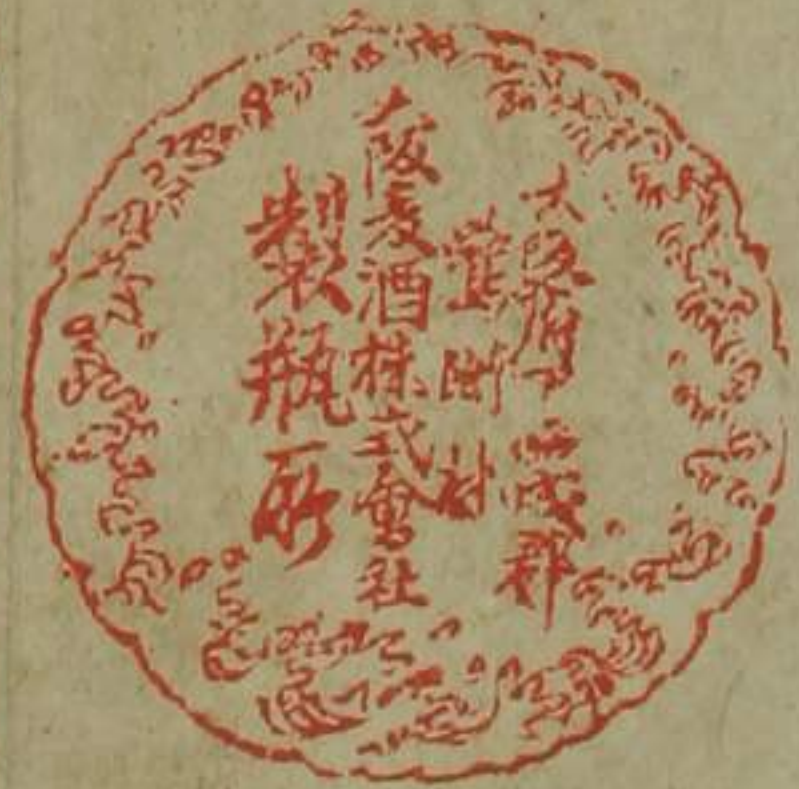 大阪府下西成郡
鷺洲村
大阪麦酒株式會社
製瓶所